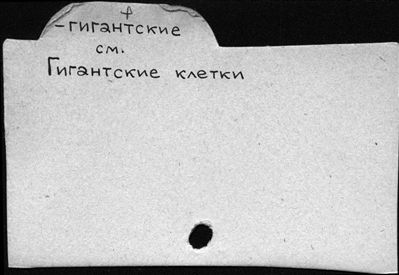 -гигантские
см.
Гигантские клетки